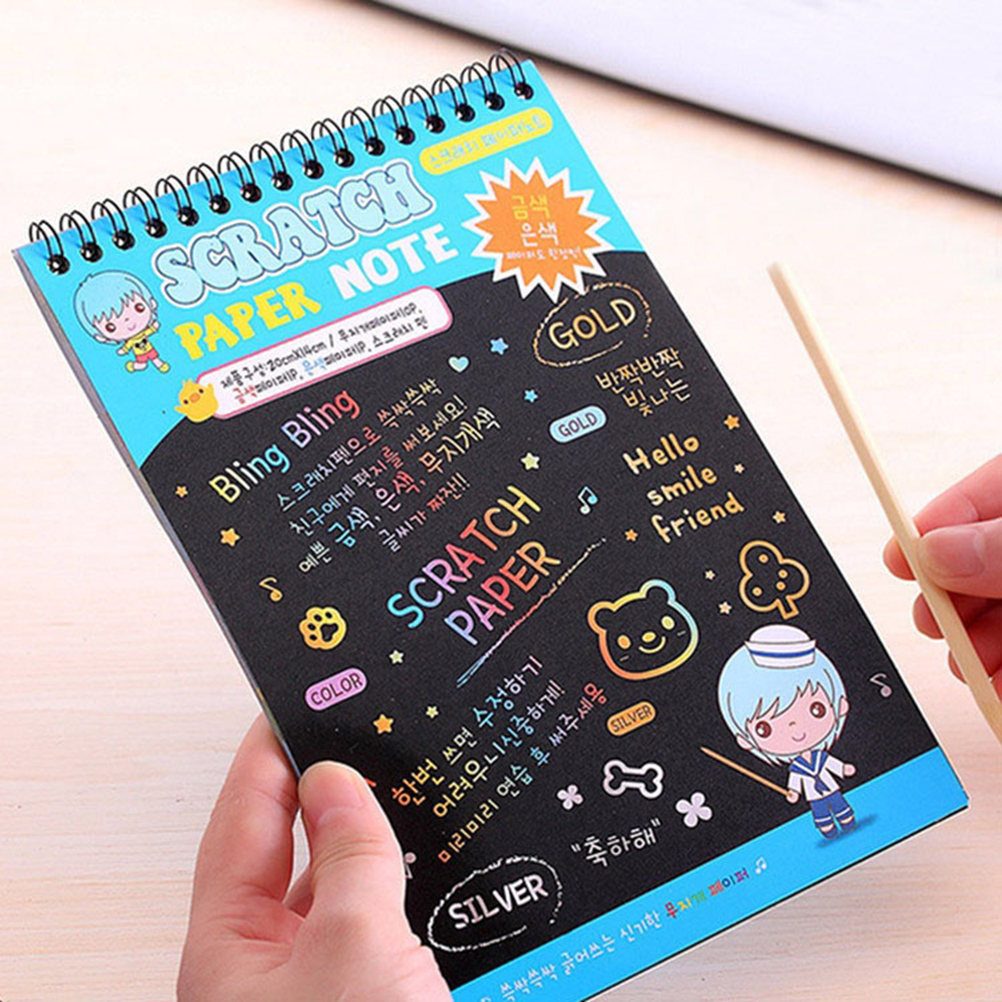 스크래치 페이퍼노트
SCRATCH
PAPER NOTE
금색
은색
제품구성:20cmX14cm / 무지개페이퍼10P,
금색페이퍼1P, 은색페이퍼1P, 스크래치 펜
GOLD
반짝반짝
빛나는
Bling Bling
스크래치펜으로 쓱싹쓱싹
친구에게 편지를 써보세요!
예쁜 금색, 은색, 무지개색
글씨가 짜잔!!
GOLD
Hello
smile
friend
SCRATCH
PAPER
COLOR
한번 쓰면 수정하기
어려우니신중하게!
미리미리 연습 후 써주세용
SILVER
"축하해"
SILVER
쓱싹쓱싹 긁어쓰는 신기한 무지개 페이퍼